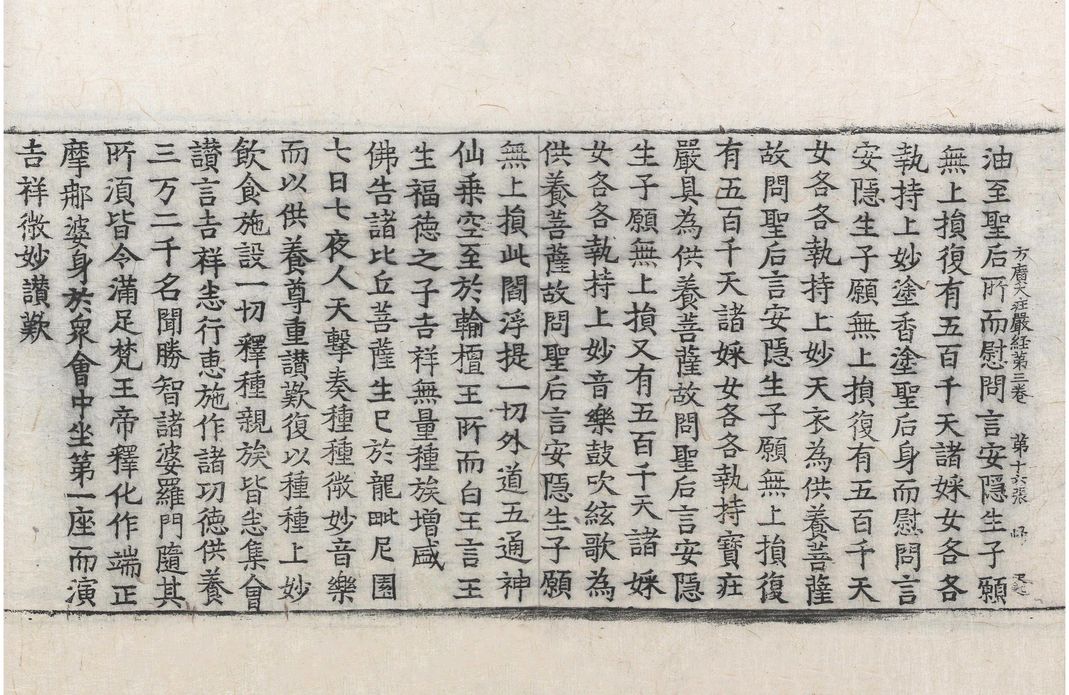 油至聖后所而慰問言安隱生子願
方廣大莊嚴經第三卷　第十六張
無上損復有五百千天諸婇女各各
執持上妙塗香塗聖后身而慰問言
安隱生子願無上損復有五百千天
女各各執持上妙天衣為供養菩薩
故問聖后言安隱生子願無上損復
有五百千天諸婇女各各執持寶莊
嚴具為供養菩薩故問聖后言安隱
生子願無上損又有五百千天諸婇
女各各執持上妙音樂鼓吹絃歌為
供養菩薩故問聖后言安隱生子願
無上損此閻浮提一切外道五通神
仙乗空至於輪檀王所而白王言王
生福德之子吉祥無量種族增盛
佛告諸比丘菩薩生已於龍毗尼園
七日七夜人天擊奏種種微妙音樂
而以供養尊重讃歎復以種種上妙
飲食施設一切釋種親族皆悉集會
讃言吉祥悉行恵施作諸功德供養
三万二千名聞勝智諸婆羅門隨其
所須皆令滿足梵王帝釋化作端正
摩那婆身於衆會中坐第一座而演
吉祥微妙讃歎